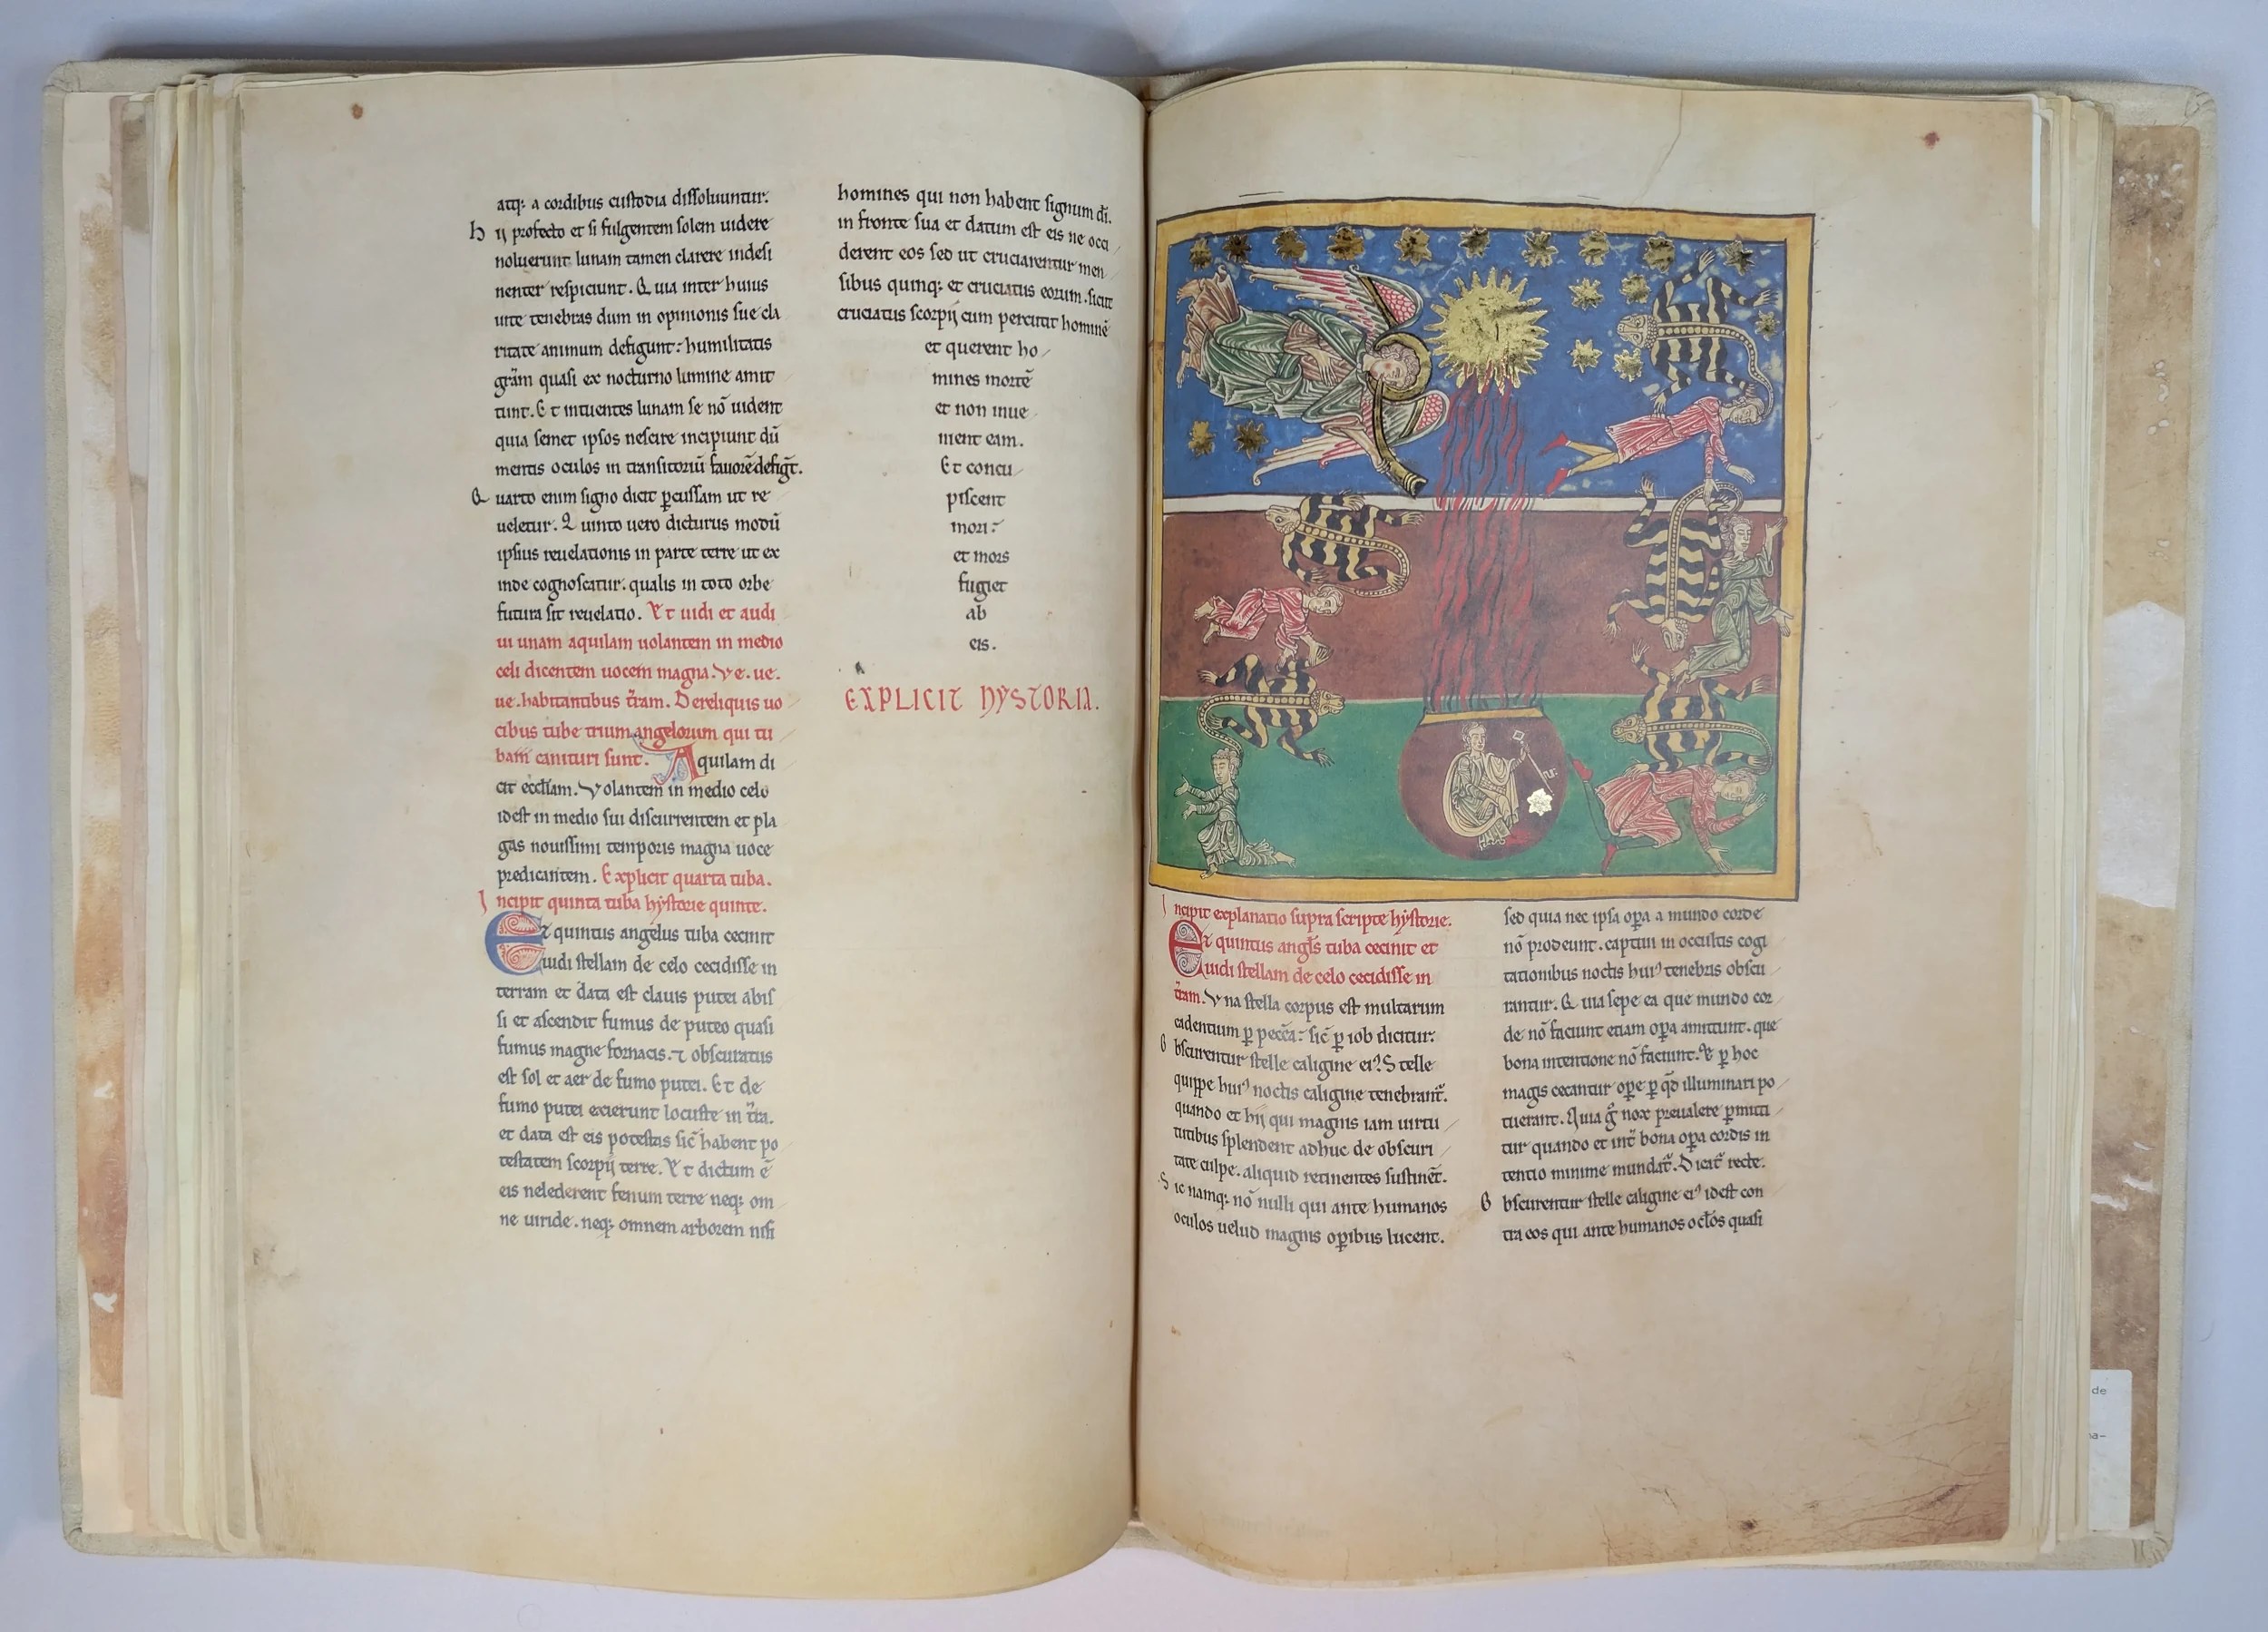 atq: a cordibus custodia dissoluuntur.
hij profecto et si fulgentem solem uidere
noluerunt lunam tamen clarere indesi
nenter respiciunt. Quia inter huius
uite tenebras dum in opinionis sue cla
ritate animum defigunt: humilitatis
gr̄am quasi ex nocturno lumine amit
tunt. Et intuentes lunam se nō uident
quia semet ipsos nescire incipiunt dū
mentis oculos in transitoriū fauorē defigt̄.
Quarto enim signo dicit ꝑcussam ut re
ueletur. Quinto uero dicturus modū
ipsius reuelationis in parte terre ut ex
inde cognoscatur. qualis in toto orbe
futura sit reuelatio. Et uidi et audi
ui unam aquilam uolantem in medio
celi dicentem uocem magna. Ve. ue.
ue. habitantibus t̄ram. De reliquis uo
cibus tube trium angelorum qui tu
bam canituri sunt. Aquilam di
cit eccl̄iam. Volantem in medio celo
idest in medio sui discurrentem et pla
gas nouissimi temporis magna uoce
predicantem. Explicit quarta tuba.
Incipit quinta tuba hystorie quinte.
Et quintus angelus tuba cecinit
et uidi stellam de celo cecidisse in
terram et data est clauis putei abis
si et ascendit fumus de puteo quasi
fumus magne fornacis. ⁊ obscuratus
est sol et aer de fumo putei. Et de
fumo putei exierunt locuste in t̄ra.
et data est eis potestas sic̄ habent po
testatem scorpij terre. Et dictum ē
eis ne lederent fenum terre neq: om
ne uiride. neq: omnem arborem nisi
homines qui non habent signum dī.
in fronte sua et datum est eis ne occi
derent eos sed ut cruciarentur men
sibus quinq: et cruciatus eorum. sicut
cruciatus scorpij cum percutit hominē
et querent ho
mines mortē
et non inue
nient eam.
Et concu
piscent
mori:
et mors
fugiet
ab
eis.
EXPLICIT HYSTORIA.
Incipit explanatio supra scripte hystorie.
Et quintus angl̄s tuba cecinit et
uidi stellam de celo cecidisse in
t̄ram. Una stella corpus est multarum
cadentium ꝑ pecc̄a: sic̄ ꝑ iob dicitur.
Obscurentur stelle caligine eiꝰ. Stelle
quippe huiꝰ noctis caligine tenebrant̄.
quando et hij qui magnis iam uirtu
tutibus splendent adhuc de obscuri
tate culpe. aliquid retinentes sustinēt.
Sic namq: nō nulli qui ante humanos
oculos uelud magnis oꝑibus lucent.
sed quia nec ipsa oꝑa a mundo corde
nō prodeunt. captiui in occultis cogi
tationibus noctis huiꝰ tenebris obscu
rantur. Quia sepe ea que mundo cor
de nō faciunt etiam oꝑa amittunt. que
bona intentione nō faciunt. Et ꝑ hoc
magis cecantur oꝑe ꝑ qd̄ illuminari po
tuerant. Quia g̊ nox preualere ꝑmitti
tur quando et int̄ bona oꝑa cordis in
tentio minime mundat̄. Dicat̄ recte.
Obscurentur stelle caligine eiꝰ idest con
tra eos qui ante humanos ocl̄os quasi
de